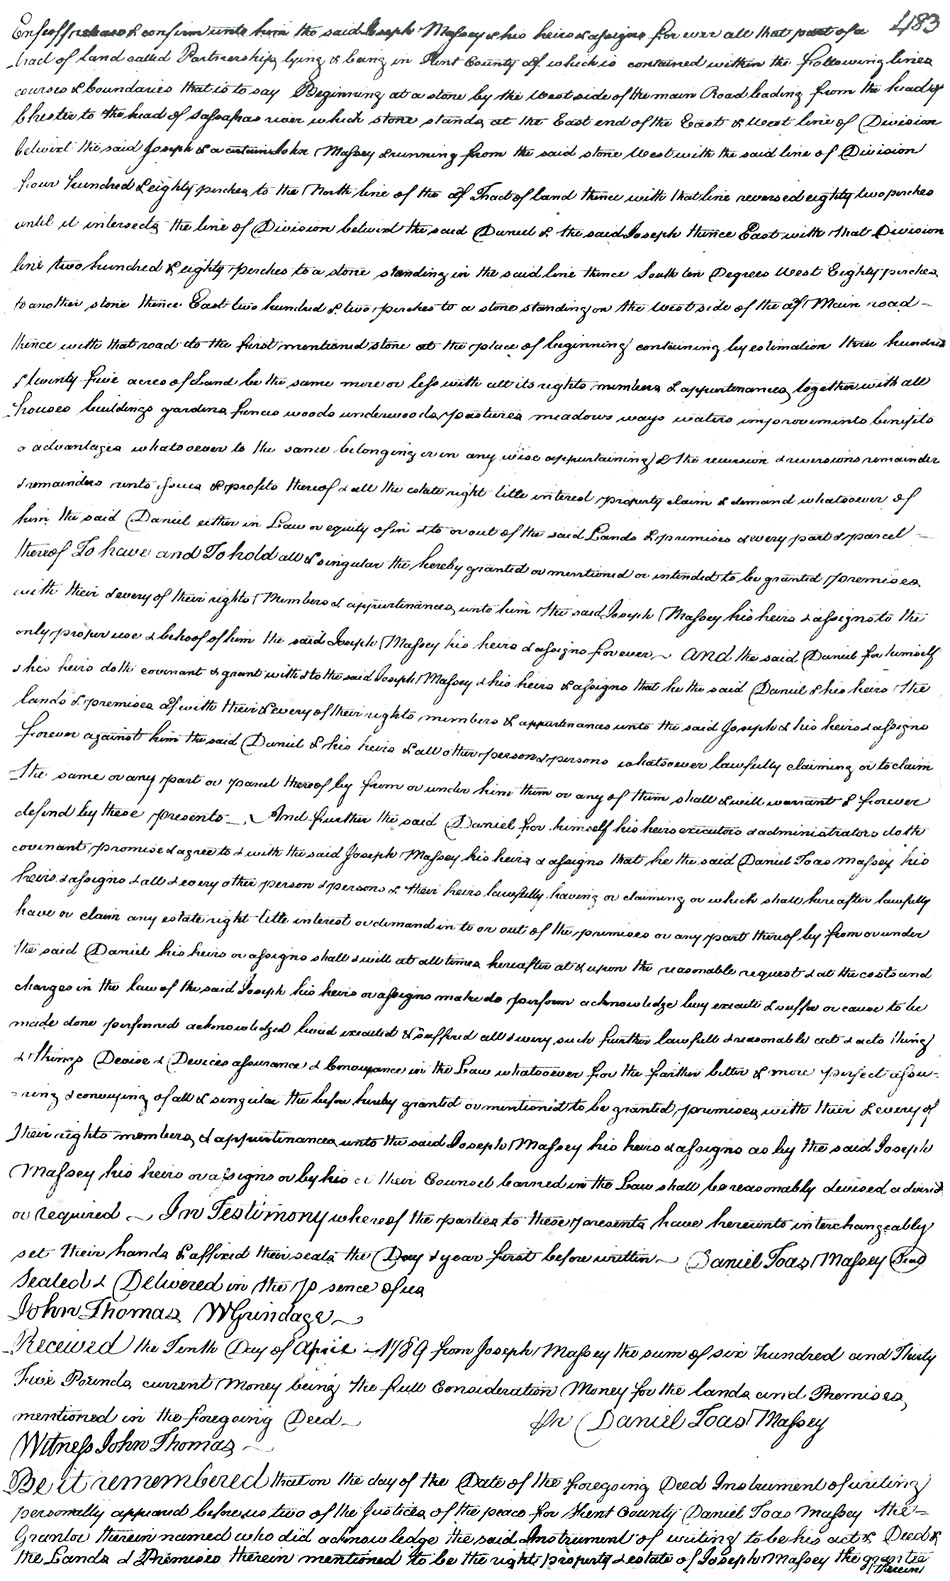 483
Enfeoff release & confirm unto him the said Joseph Massey & his heirs & assigns for ever all that part of a
Tract of land called Partnership lying & being in Kent County afd which is contained within the following lines
courses & boundaries that is to say Beginning at a stone by the West side of the main Road leading from the head of
Chester to the head of Sassafras river which stone stands at the East end of the East & West line of Division
betwixt the said Joseph & a certain John Massey & running from the said stone West with the said line of Division
four hundred & eighty perches to the North line of the afd Tract of land thence with that line reversed eighty two perches
until it intersects the line of Division betwixt the said Daniel & the said Joseph thence East with that Division
line two hundred & eighty perches to a stone standing in the said line thence South ten Degrees West Eighty perches
to another stone thence East two hundred & two perches to a stone standing on the West side of the afd Main road
thence with that road to the first mentioned stone at the place of beginning containing by estimation three hundred
& twenty five acres of Land be the same more or less with all its rights members & appurtenances together with all
houses buildings gardens fences woods underwoods pastures meadows ways waters improvements benefits
& advantages whatsoever to the same belonging or in any wise appurtaining & the reversion & reversions remainder
& remainders rents issues & profits thereof & all the estate right title interest property claim & demand whatsoever of
him the said Daniel either in Law or equity of in & to or out of the said Lands & premises & every part & parcel
thereof To have and To hold all & singular the hereby granted or mentioned or intended to be granted premises
with their & every of their rights Members & appurtenances unto him the said Joseph Massey his heirs & assigns to the
only proper use & behoof of him the said Joseph Massey his heirs & assigns for ever And the said Daniel for himself
& his heirs doth covenant & grant with & to the said Joseph Massey & his heirs & assigns that he the said Daniel & his heirs the
lands & premises afd with their & every of their rights members & appurtenances unto the said Joseph & his heirs & assigns
forever against him the said Daniel & his heirs & all other person & persons whatsoever lawfully claiming or to claim
the same or any part or parcel thereof by from or under him them or any of them shall & will warrant & forever
defend by these presents And further the said Daniel for himself his heirs executors & administrators doth
covenant promise & agree to & with the said Joseph Massey his heirs & assigns that he the said Daniel Toas Massey his
heirs & assigns & all & every other person & persons & their heirs lawfully having or claiming or which shall hereafter lawfully
have or claim any estate right title interest or demand in to or out of the premises or any part thereof by from or under
the said Daniel his heirs or assigns shall & will at all times hereafter at & upon the reasonable request & at the costs and
charges in the law of the said Joseph his heirs or assigns make do perform acknowledge levy execute & suffer or cause to be
made done performed acknowledged levied executed & suffered all & every such further lawfull & reasonable act & acts thing
& things Devise & Devices assurance & Conveyance in the Law whatsoever for the farther better & more perfect assu-
-ring & conveying of all & singular the before hereby granted or mentioned to be granted premises with their & every of
their rights members & appurtenances unto the said Joseph Massey his heirs & assigns as by the said Joseph
Massey his heirs or assigns or by his or their Counsel learned in the Law shall be reasonably devised advised
or required In Testimony whereof the parties to these presents have hereunto interchangeably
set their hands & affixed their seals the Day & year first before written Daniel Toas Massey Seal
Sealed & Delivered in the Presence of us
John Thomas W Grindage
Received the Tenth Day of April 1789 from Joseph Massey the sum of six hundred and Thirty
Five Pounds current Money being the full Consideration Money for the lands and Premises
mentioned in the foregoing Deed Daniel Toas Massey
Witness John Thomas
Be it remembered that on the day of the Date of the foregoing Deed Instrument of writing
personally appeard before us two of the Justices of the peace for Kent County Daniel Toas Massey the
Grantor therein named who did acknowledge the said Instrument of writing to be his act & Deed &
the Lands & Premises therein mentioned to be the right property & estate of Joseph Massey the grantee
therein